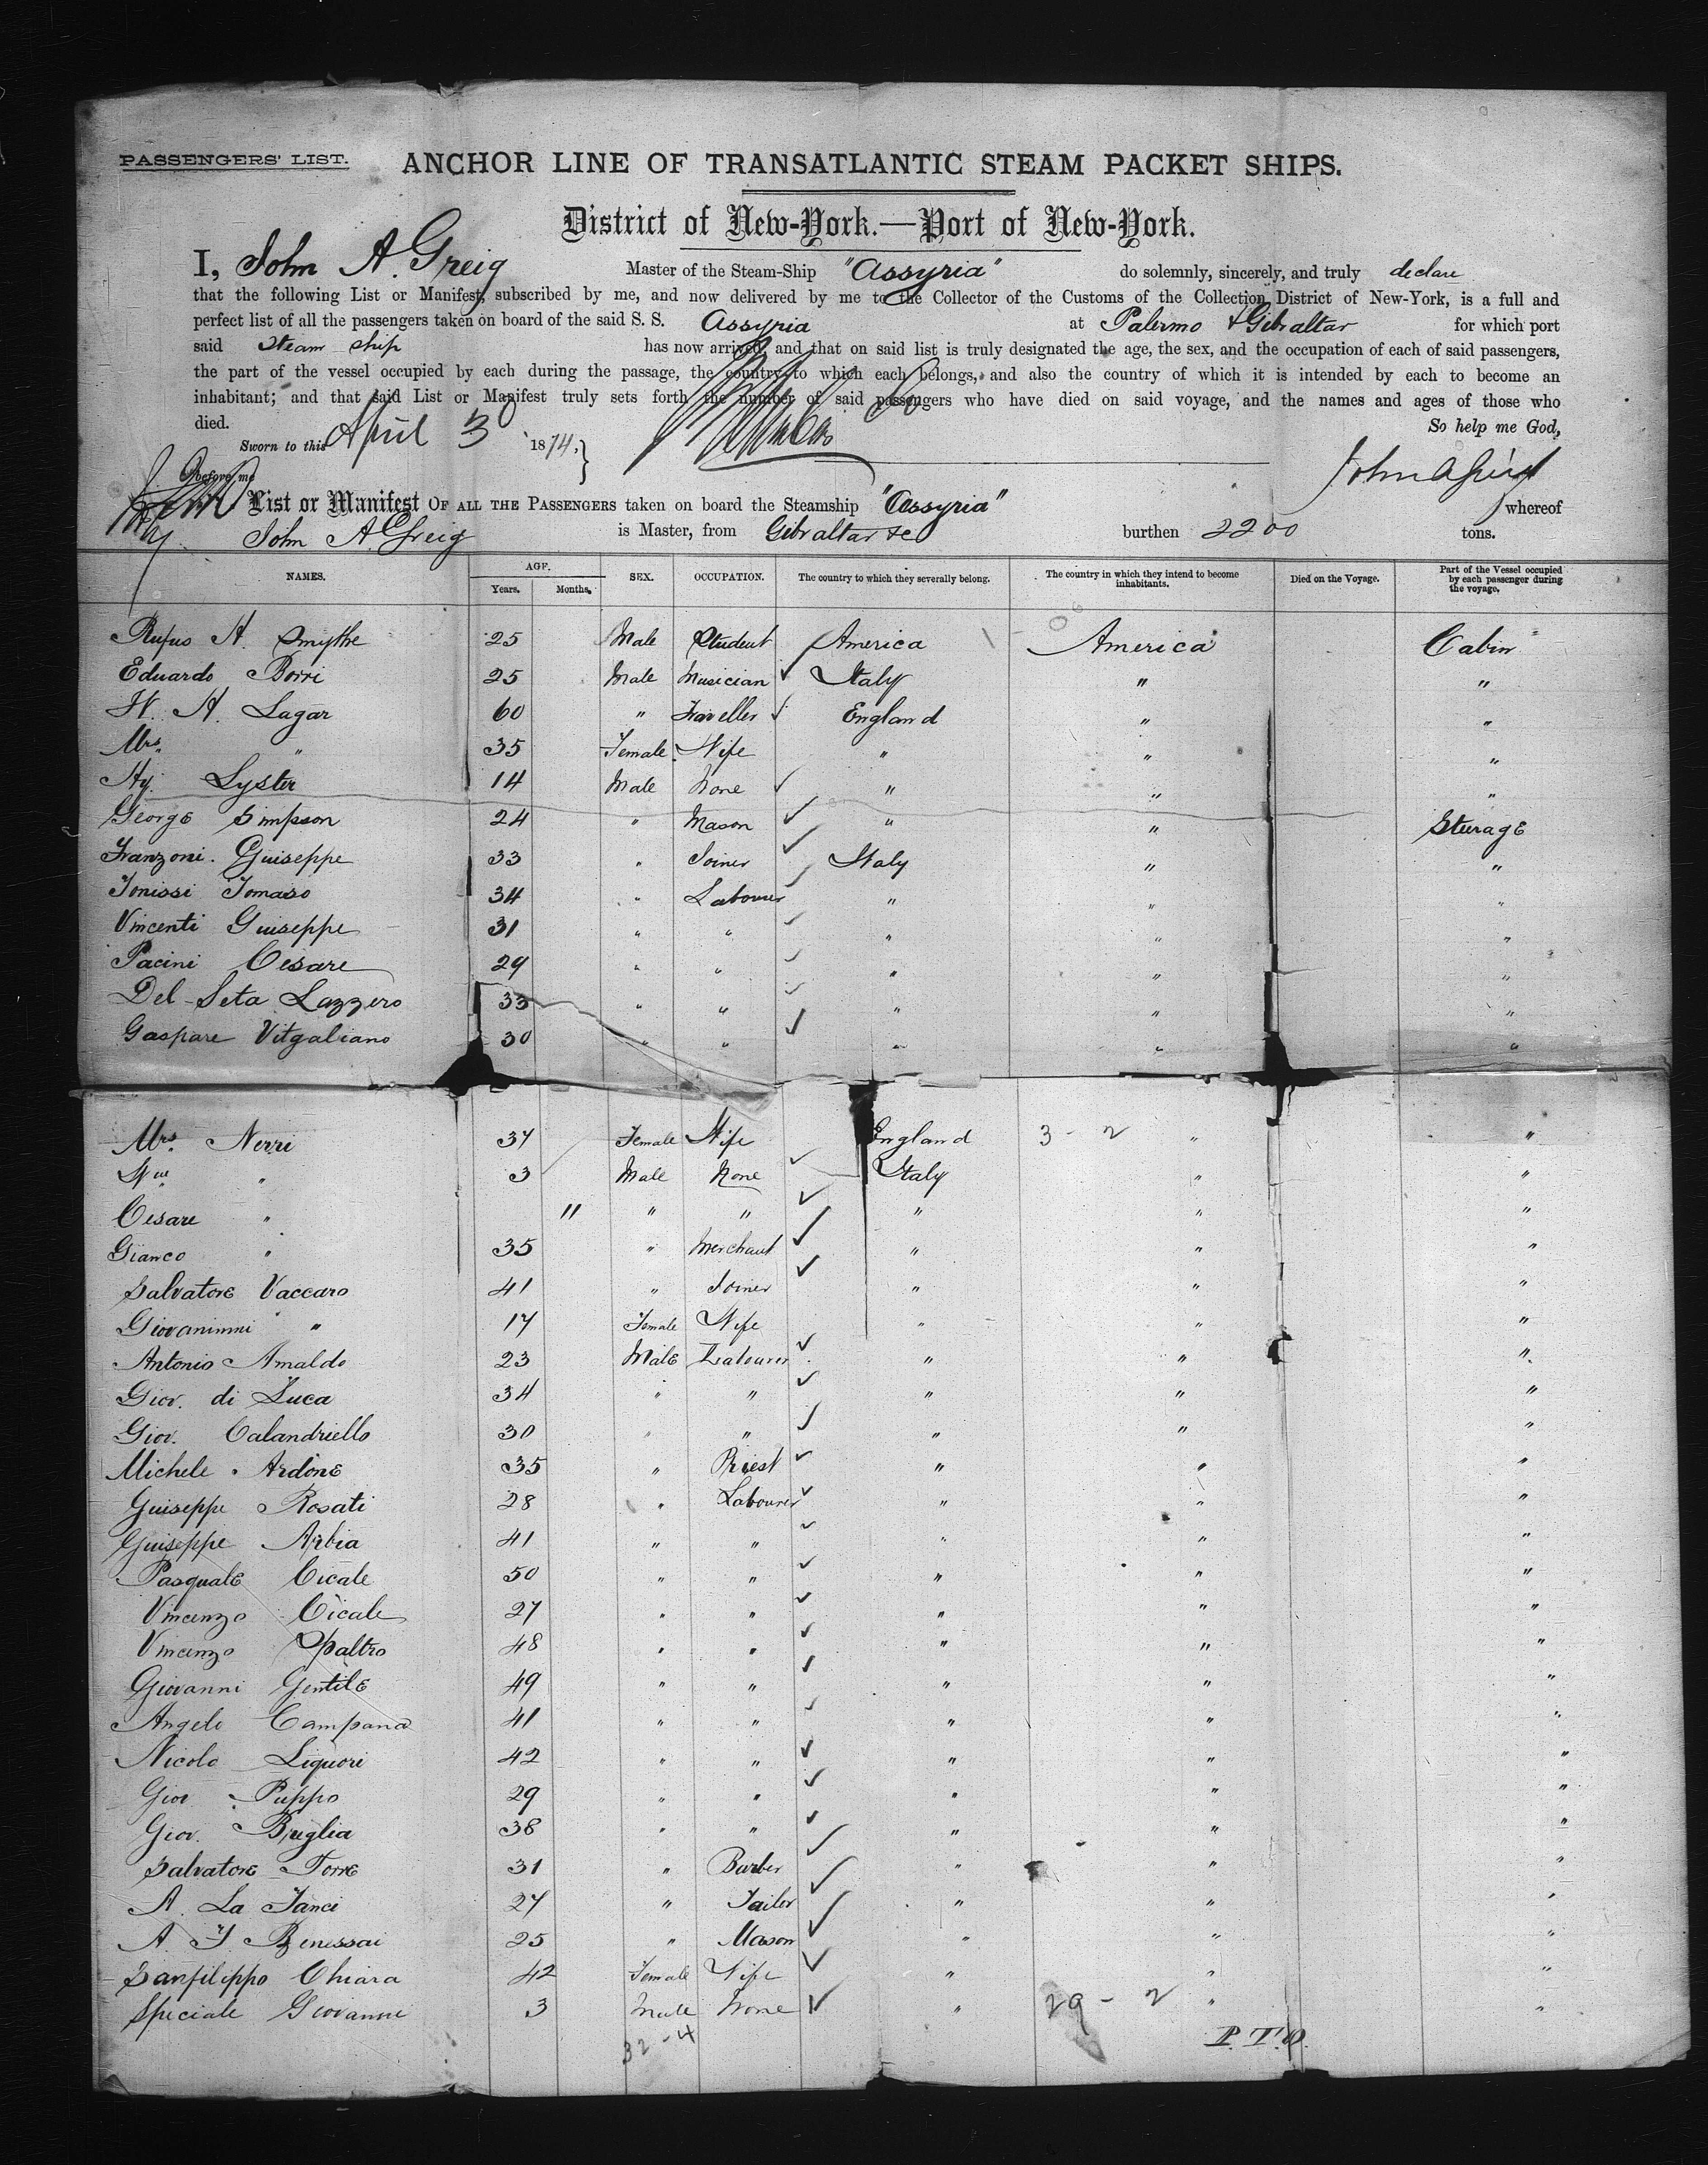 PASSENGERS' LIST. ANCHOR LINE OF TRANSATLANTIC STEAM PACKET SHIPS.
District of New-York.—Port of New-York.
I, John A. Greig Master of the Steam-Ship "Assyria" do solemnly, sincerely, and truly declare
that the following List or Manifest, subscribed by me, and now delivered by me to the Collector of the Customs of the Collection District of New-York, is a full and
perfect list of all the passengers taken on board of the said S. S. Assyria at Palermo & Gibraltar for which port
said Steam ship has now arrived, and that on said list is truly designated the age, the sex, and the occupation of each of said passengers,
the part of the vessel occupied by each during the passage, the country to which each belongs, and also the country of which it is intended by each to become an
inhabitant; and that said List or Manifest truly sets forth the number of said passengers who have died on said voyage, and the names and ages of those who
died. So help me God,
Sworn to this April 30 1874,
before me
List or Manifest OF ALL THE PASSENGERS taken on board the Steamship "Assyria" whereof
John A. Greig is Master, from Gibraltar &c burthen 2200 tons.
NAMES. AGE. Years. Months. SEX. OCCUPATION. The country to which they severally belong. The country in which they intend to become inhabitants. Died on the Voyage. Part of the Vessel occupied by each passenger during the voyage.
Rufus H. Smythe 25 Male Student America America Cabin
Eduardo Borri 25 Male Musician Italy " "
H. A. Lagar 60 " Traveller England " "
Mrs. " 35 Female Wife " " "
Hy. Lyster 14 Male None " " "
George Simpson 24 " Mason " " Steerage
Franzoni. Guiseppe 33 " Joiner Italy " "
Tonissi Tomaso 34 " Labourer " " "
Vincenti Guiseppe 31 " " " " "
Pacini Cesare 29 " " " " "
Del-Seta Lazzero 33 " " " " "
Gaspare Vitgaliano 30 " " " " "
Mrs. Nerri 37 Female Wife England 3 - 2 " "
Wm " 3 Male None Italy " "
Cesare " 11 " " " " "
Gianco " 35 " Merchant " " "
Salvatore Vaccaro 41 " Joiner " " "
Giovanimni " 17 Female Wife " " "
Antonio Amaldo 23 Male Labourer " " "
Giov. di Luca 34 " " " " "
Giov. Calandriello 30 " " " " "
Michele Ardone 35 " Priest " " "
Guiseppe Rosati 28 " Labourer " " "
Guiseppe Arbia 41 " " " " "
Pasquale Cicale 50 " " " " "
Vincenzo Cicale 27 " " " " "
Vincenzo Spaltro 48 " " " " "
Giovanni Gentile 49 " " " " "
Angelo Campana 41 " " " " "
Nicolo Liquori 42 " " " " "
Giov Puppo 29 " " " " "
Giov. Briglia 38 " " " " "
Salvatore Torre 31 " Barber " " "
A. La Tanci 27 " Tailor " " "
A. T. Benessai 25 " Mason " " "
Sanfilippo Chiara 42 Female Wife " " "
Speciale Giovanni 3 Male None " 29 - 2 " "
32-4 P.T.O.